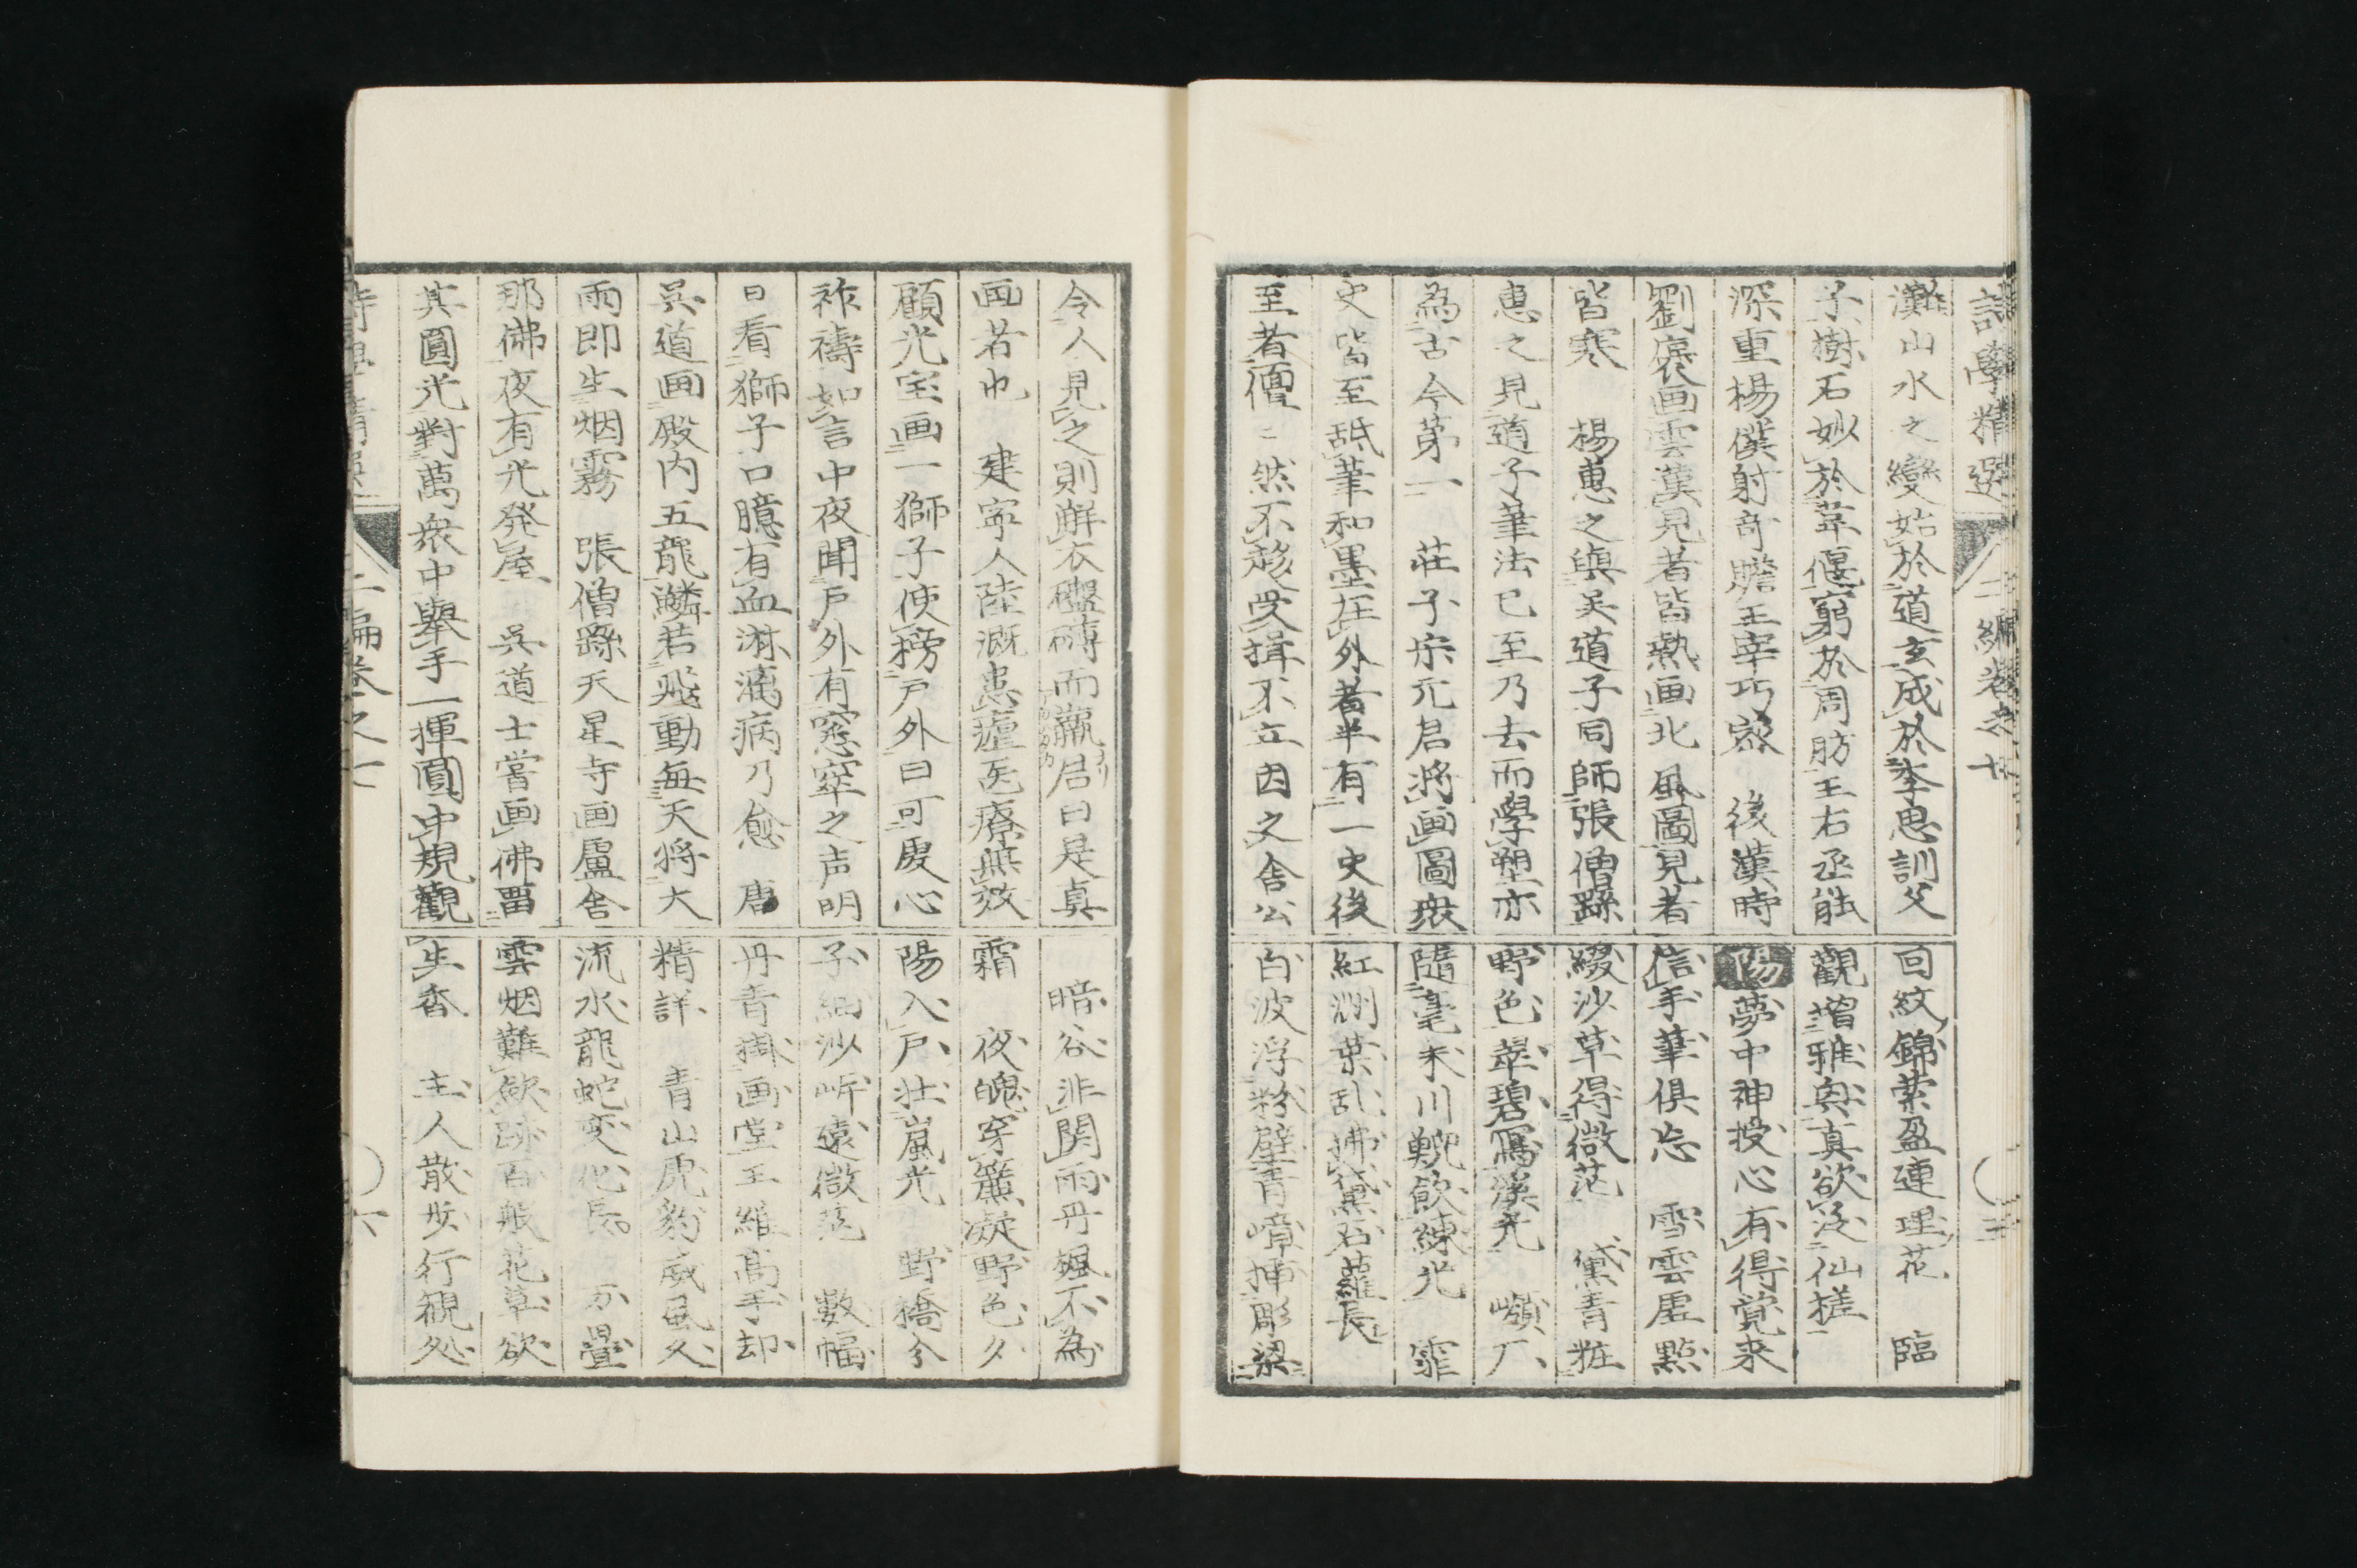 詩學精選 二編卷之七
灘山水之變始於道玄成於李思訓父
子樹石妙於韋偃窮於周肪王右丞能
深重楊僕射奇贍王宰巧密 後漢時
劉褒画雲漢見者皆熱画北風圖見者
皆寒 楊惠之與吳道子同師張僧繇
惠之見道子筆法已至乃去而學塑亦
為古今第一 莊子宗元君將画圖衆
史皆至舐筆和墨在外者半有一史後
至者儃〻然不趍受揖不立因之舍公
回紋錦縈盈連理花 臨
觀增雅奥真欲泛仙槎
陽夢中神授心有得覚来
信手筆俱忘 雪雲虛點
綴沙草得微茫 黛青粧
野色翠碧寫溪光 巘厂
隨毫末川輓飲練光 霏
紅洲葉乱拂黛石蘿長
白波浮粉壁青嶂挿彫梁
令人見之則解衣礴而臝君曰是真
画者也 建寧人陸溉患瘧医療無效
顧光宝画一獅子使榜戶外曰可虔心
祚禱如言中夜聞戸外有窸窣之声明
日看獅子口臆有血淋漓病乃愈 唐
吳道画殿内五龍鱗若飛動每天將大
雨即生烟霧 張僧繇天星寺画盧舍
那佛夜有光発屋 吳道士嘗画佛畱
其圓光對萬衆中舉手一揮圓中規觀
暗谷非関雨丹楓不為
霜 夜魄穿簾凝野色夕
陽入戸壮嵐光 野橋分
子細沙岓遠微茫 數幅
丹青掛画堂王維髙手却
精詳 青山虎豹威風久
流水龍蛇変化長 万疊
雲烟難欲跡百般花草欲
生香 主人散步行観処
二編卷之七
六